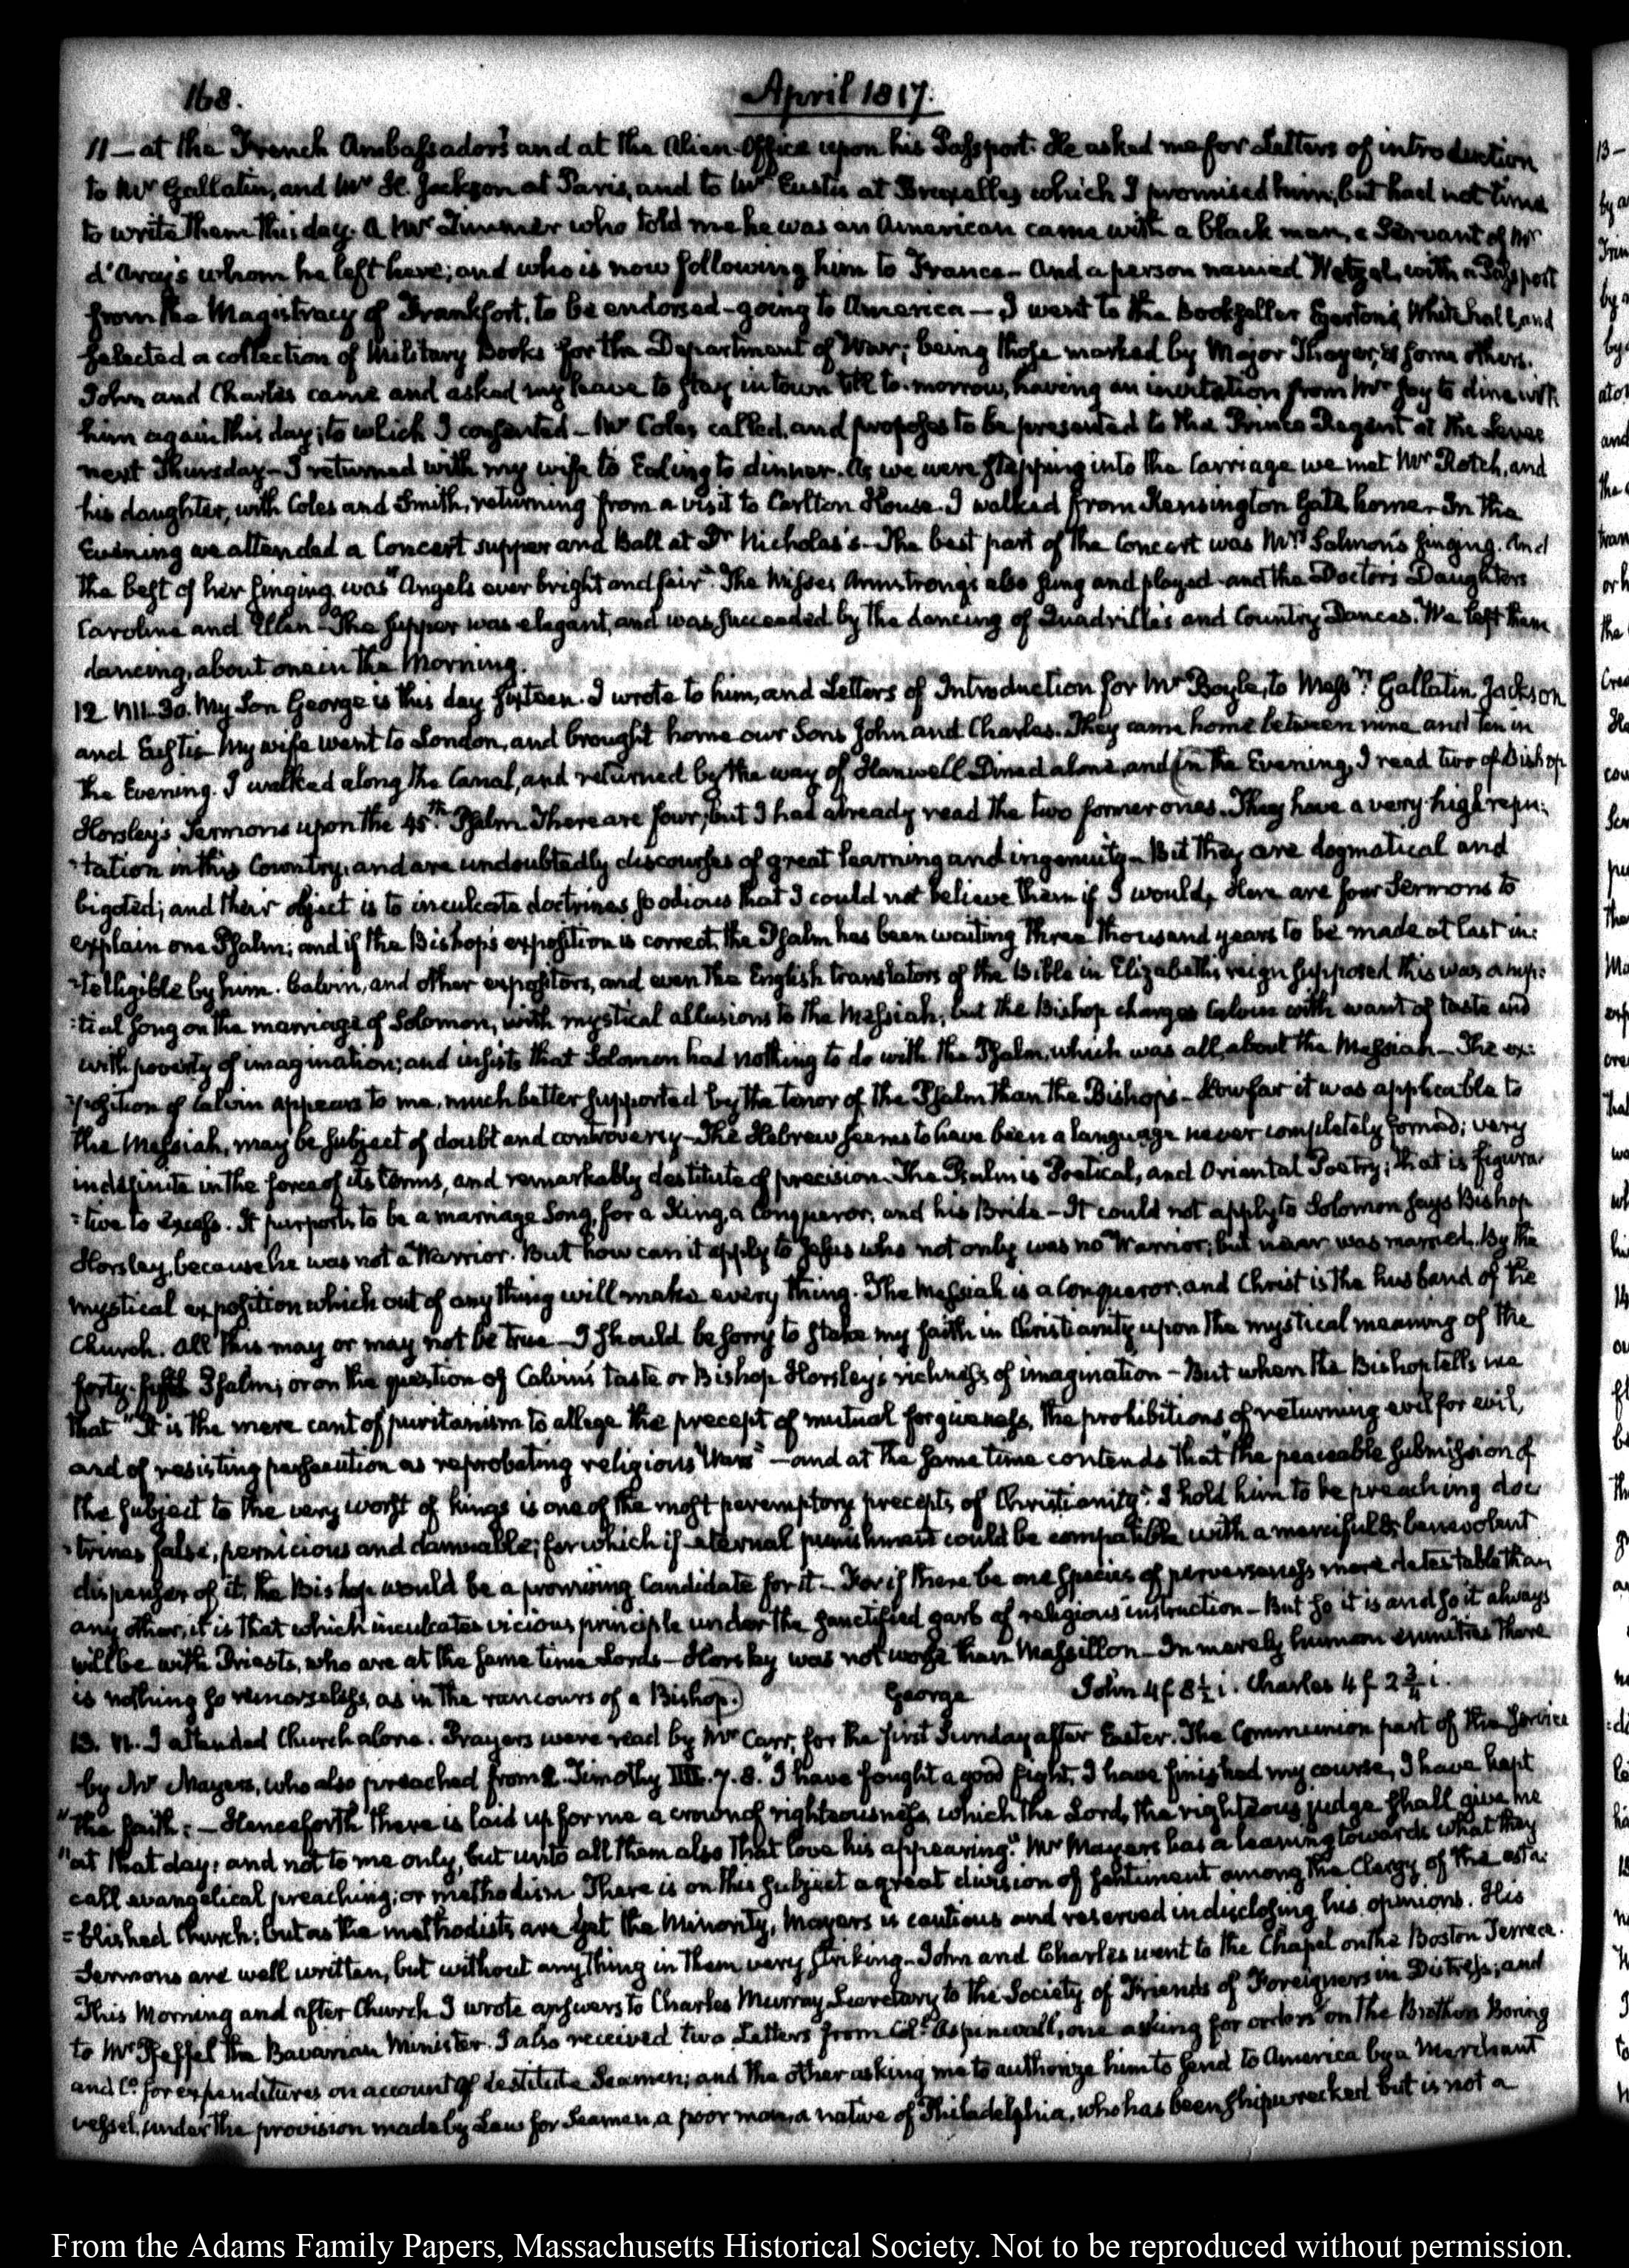 168.
April 1817.
11 — at the French Ambassador's and at the Alien-Office upon his Passport. He asked me for Letters of introduction
to Mr Gallatin, and Mr H. Jackson at Paris, and to Mr Eustis at Bruxelles, which I promised him, but had not time
to write them this day. A Mr who told me he was an American came with a black man, a Servant of Mr
d'Aray's whom he left here; and who is now following him to France — And a person named Wetzel, with a Passport
from the Magistracy of Frankfort, to be endorsed — going to America — I went to the Bookseller Egerton's, Whitehall, and
selected a collection of Military Books for the Department of War; being those marked by Major Thayer, & some others.
John and Charles came and asked my leave to stay in town till to-morrow, having an invitation from Mr Joy to dine with
him again this day; to which I consented — Mr Coles called, and proposes to be presented to the Prince Regent at the Levee
next Thursday — I returned with my wife to Ealing to dinner. As we were stepping into the Carriage we met Mr Rotch, and
his daughter, with Coles and Smith, returning from a visit to Carlton House. I walked from Kensington Gate home — In the
Evening we attended a Concert supper and Ball at Dr Nicholas's — The best part of the Concert was Mrs Salmon's singing. And
the best of her singing was "Angels ever bright and fair." The Misses Armstrong's also sung and played — and the Doctor's Daughters
Caroline and Ellen — The supper was elegant, and was succeeded by the dancing of Quadrilles and Country Dances. We left them
dancing, about one in the Morning.
12. VII. 30. My Son George is this day sixteen. I wrote to him, and Letters of Introduction for Mr Boyle, to Messrs Gallatin, Jackson
and Eustis — My wife went to London, and brought home our Sons John and Charles. They came home between nine and ten in
the Evening. I walked along the Canal, and returned by the way of Hanwell. Dined alone, and (in the Evening, I read two of Bishop
Horsley's Sermons upon the 45th Psalm. There are four; but I had already read the two former ones. They have a very high repu-
-tation in this Country, and are undoubtedly discourses of great learning and ingenuity — But they are dogmatical and
bigoted; and their object is to inculcate doctrines so odious that I could not believe them if I would, Here are four Sermons to
explain one Psalm; and if the Bishop's exposition is correct, the Psalm has been waiting three thousand years to be made at last in-
-telligible by him. Calvin, and other expositors, and even the English translators of the Bible in Elizabeth's reign supposed this was a nup-
-tial song on the marriage of Solomon, with mystical allusions to the Messiah; but the Bishop charges Calvin with want of taste and
with poverty of imagination; and insists that Solomon had nothing to do with the Psalm, which was all about the Messiah — The ex-
-position of Calvin appears to me, much better supported by the tenor of the Psalm than the Bishop's — How far it was applicable to
the Messiah, may be subject of doubt and controversy — The Hebrew seems to have been a language never completely formed; very
indefinite in the force of its terms, and remarkably destitute of precision. The Psalm is Poetical, and Oriental Poetry; that is figura-
-tive to excess. It purports to be a marriage Song, for a King, a Conqueror, and his Bride — It could not apply to Solomon says Bishop
Horsley, because he was not a Warrior. But how can it apply to Jesus who not only was no Warrior; but never was married. By the
mystical exposition which out of any thing will make every thing. The Messiah is a Conqueror, and Christ is the husband of the
Church. All this may or may not be true — I should be sorry to stake my faith in Christianity upon the mystical meaning of the
forty-fifth Psalm; or on the question of Calvin's taste or Bishop Horsley's richness of imagination — But when the Bishop tells me
that "It is the mere cant of puritanism to allege the precept of mutual forgiveness, the prohibitions of returning evil for evil,
and of resisting persecution as reprobating religious Wars" — and at the same time contends that "the peaceable submission of
the subject to the very worst of kings is one of the most peremptory precepts of Christianity." I hold him to be preaching doc-
-trines false, pernicious and damnable; for which if eternal punishment could be compatible with a merciful & benevolent
dispenser of it, the Bishop would be a promising Candidate for it — For if there be one species of perverseness more detestable than
any other, it is that which inculcates vicious principle under the sanctified garb of religious instruction — But so it is and so it always
will be with Priests, who are at the same time Lords — Horsley was not worse than Massillon — In merely human enmities there
is nothing so remorseless, as in the rancours of a Bishop.) George John 4 f 8 ½ i. Charles 4 f 2 ¾ i.
13. VI. I attended Church alone. Prayers were read by Mr Carr, for the first Sunday after Easter. The Communion part of the Service
by Mr Mayers, who also preached from 2. Timothy IIII. 7. 8. "I have fought a good fight, I have finished my course, I have kept
"the faith: — Henceforth there is laid up for me a crown of righteousness, which the Lord, the righteous judge shall give me
"at that day: and not to me only, but unto all them also that love his appearing." Mr Mayers has a leaning towards what they
call evangelical preaching; or methodism. There is on this subject a great division of sentiment among the Clergy of the esta-
-blished Church; but as the methodists are yet the Minority, Mayers is cautious and reserved in disclosing his opinions. His
Sermons are well written, but without any thing in them very striking — John and Charles went to the Chapel on the Boston Terrace.
This Morning and after Church I wrote answers to Charles Murray Secretary to the Society of Friends of Foreigners in Distress; and
to Mr Pfeffel the Bavarian Minister. I also received two Letters from Coll Aspinwall, one asking for orders on the Brothers Baring
and Co for expenditures on account of destitute Seamen; and the other asking me to authorize him to send to America by a Merchant
vessel, under the provision made by Law for Seamen, a poor man, a native of Philadelphia, who has been shipwrecked but is not a
From the Adams Family Papers, Massachusetts Historical Society. Not to be reproduced without permission.